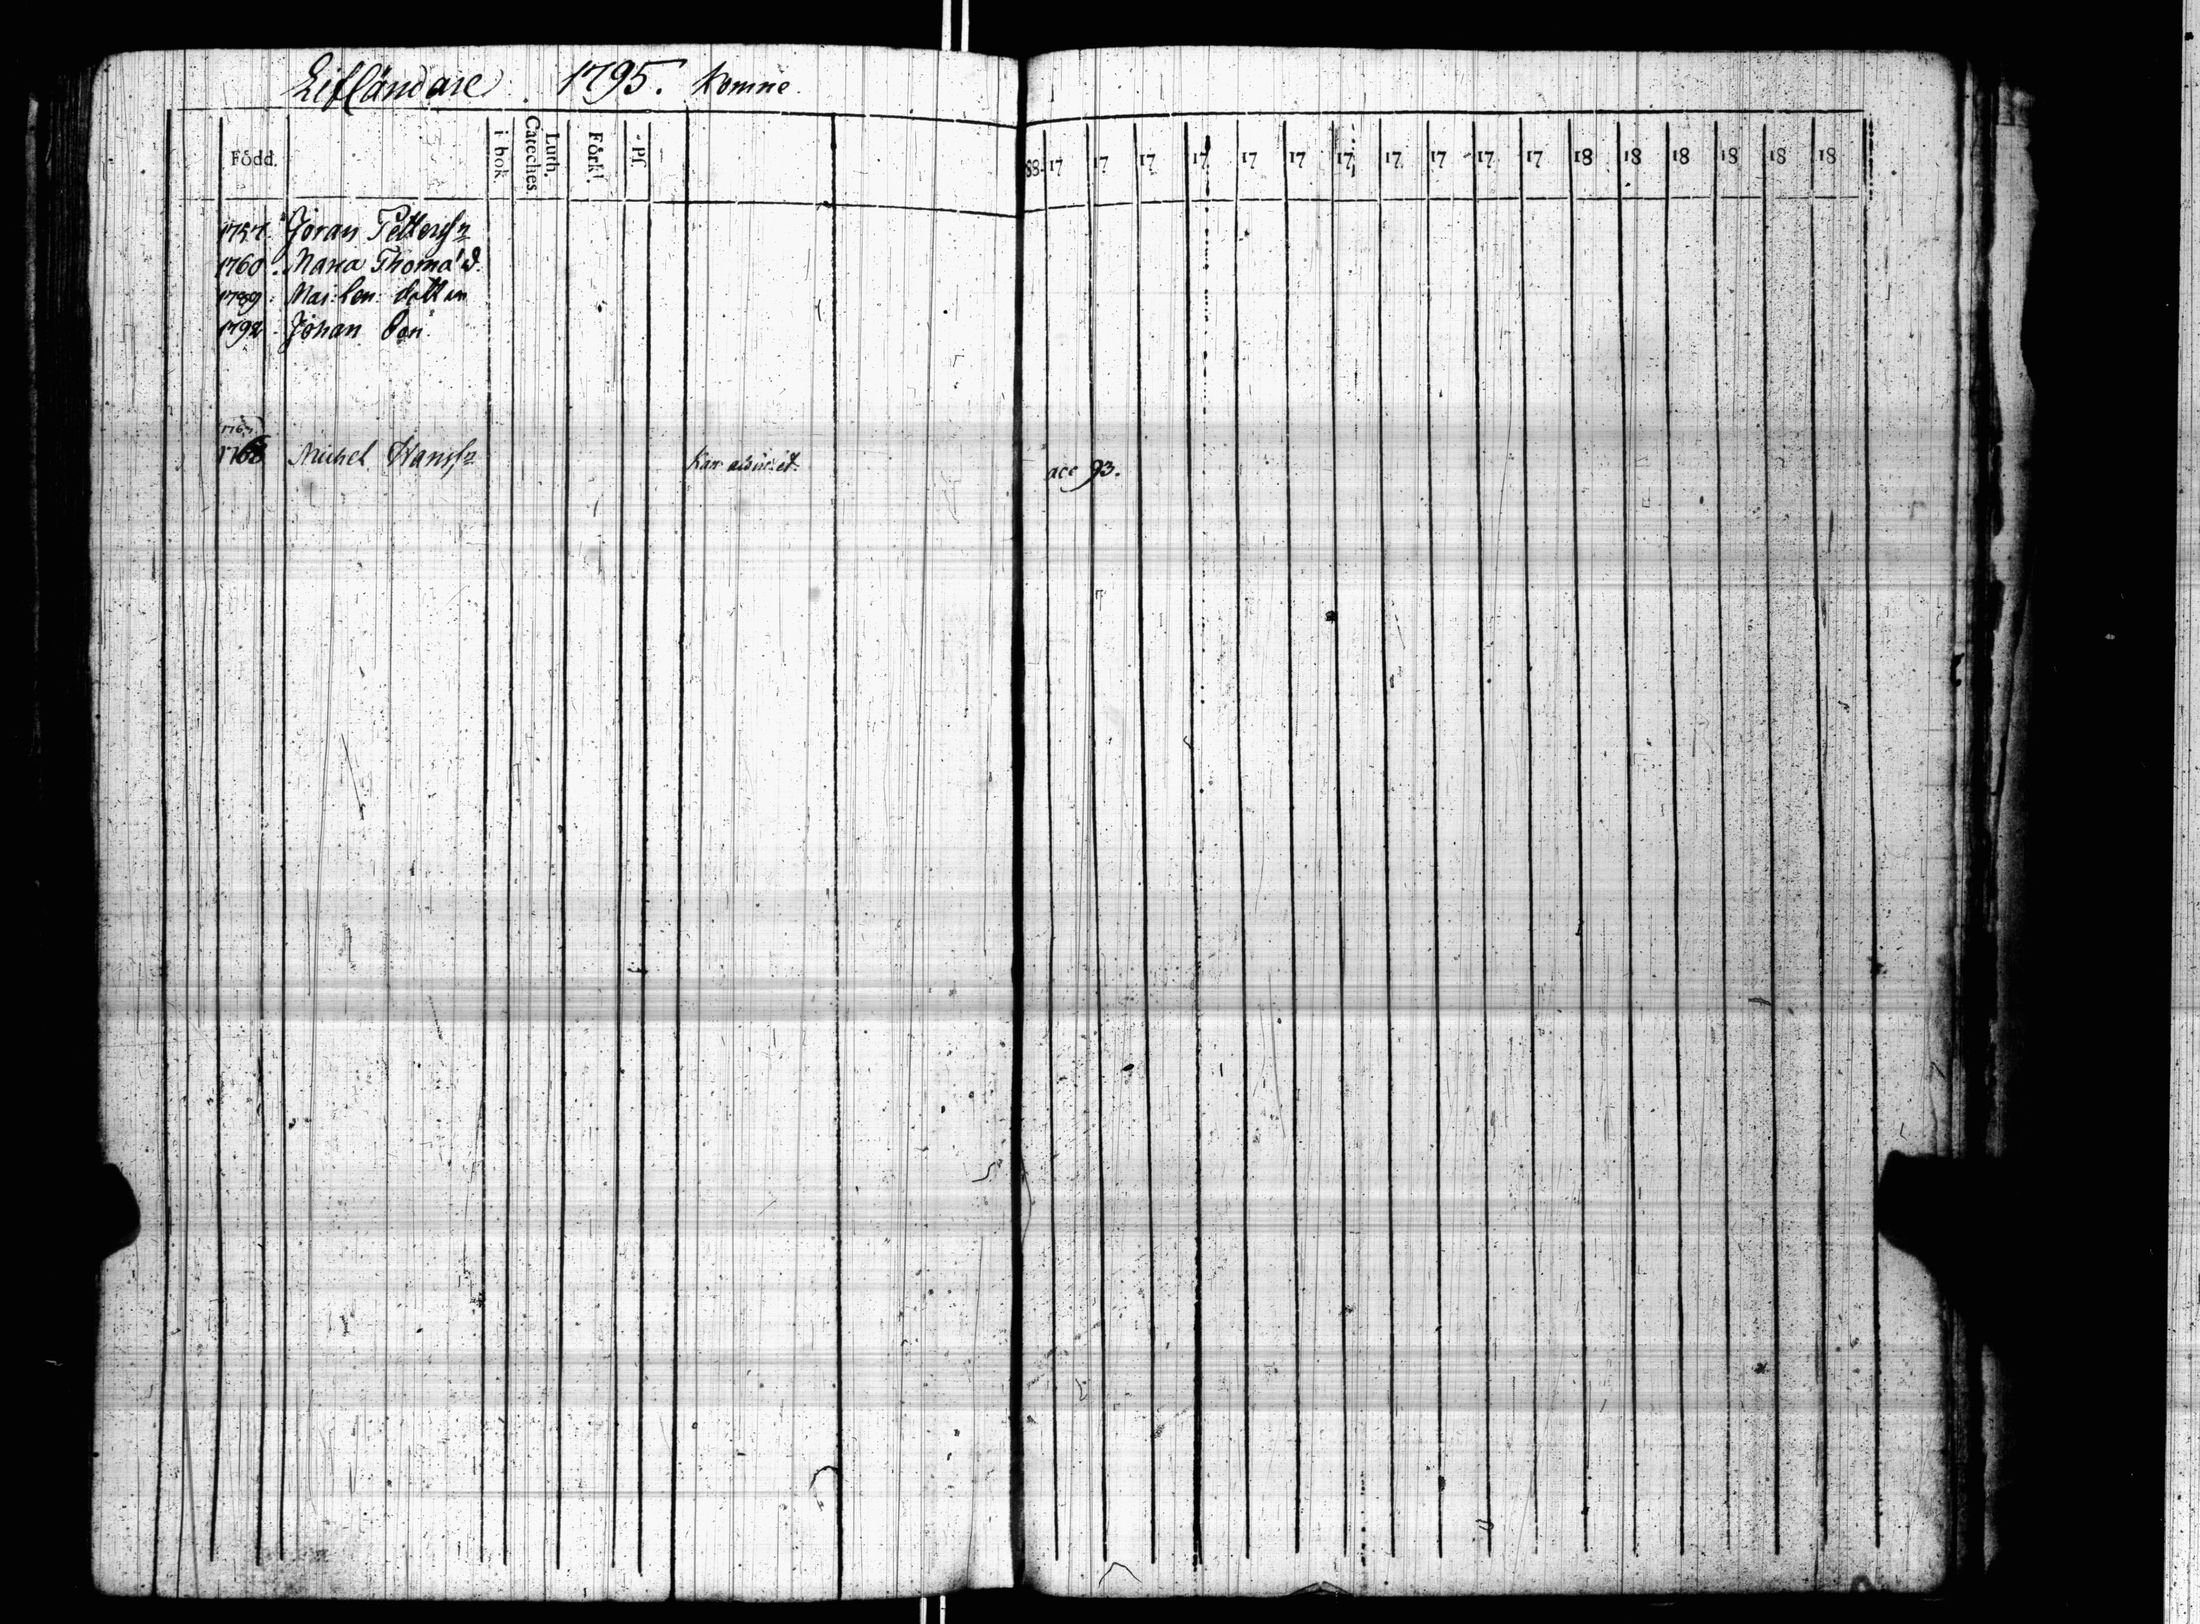 Lifländare 1795. komne.
Född. i bok. Luth. Cateches. Förkl. Pſ. 88. 17 17 17 17 17 17 17 17 17 17 17 18 18 18 18 18 18
1757. Jöran Petterſn
1760. Maria Thoma d.
1789. Mai: Len: dotter
1792 Johan Son
1767
1768 Michel Hansſn acc 93.